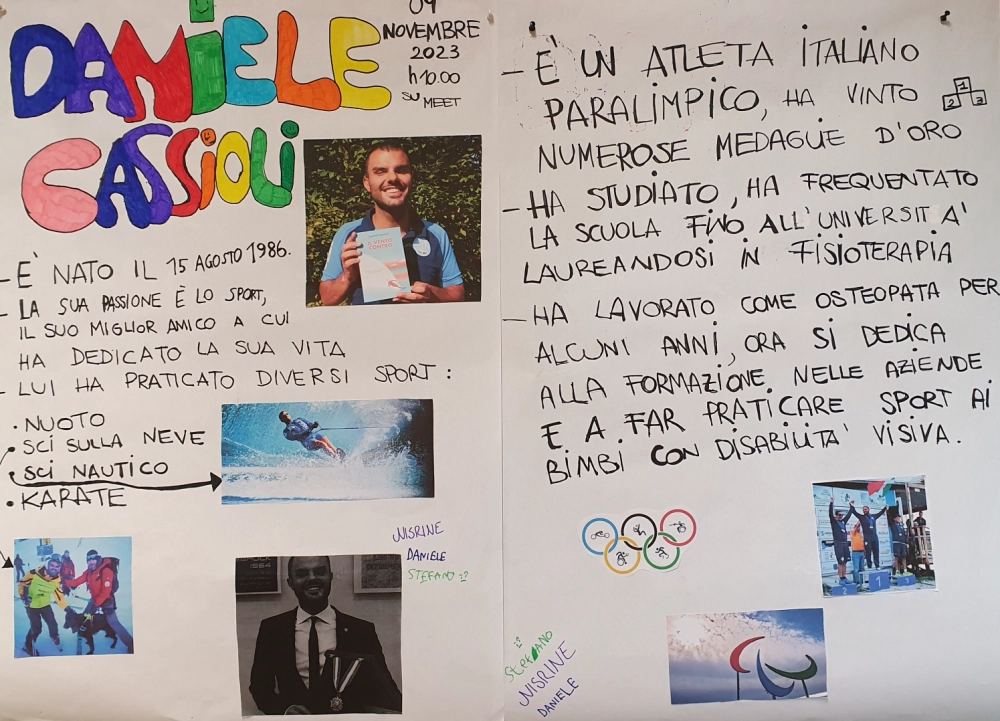 DANIELE
CASSIOLI
09
NOVEMBRE
2023
h 10.00
SU MEET
- E' NATO IL 15 AGOSTO 1986.
- LA SUA PASSIONE È LO SPORT,
IL SUO MIGLIOR AMICO A CUI
HA DEDICATO LA SUA VITA
- LUI HA PRATICATO DIVERSI SPORT:
• NUOTO
• SCI SULLA NEVE
• SCI NAUTICO
• KARATE
IL VENTO
CONTRO
1984
NISRINE
DANIELE
STEFANO
- È UN ATLETA ITALIANO
PARALIMPICO, HA VINTO
2 1 3
NUMEROSE MEDAGLIE D'ORO
- HA STUDIATO, HA FREQUENTATO
LA SCUOLA FINO ALL'UNIVERSITA'
LAUREANDOSI IN FISIOTERAPIA
- HA LAVORATO COME OSTEOPATA PER
ALCUNI ANNI, ORA SI DEDICA
ALLA FORMAZIONE NELLE AZIENDE
E A FAR PRATICARE SPORT AI
BIMBI CON DISABILITA' VISIVA.
2 1 3
STEFANO
NISRINE
DANIELE